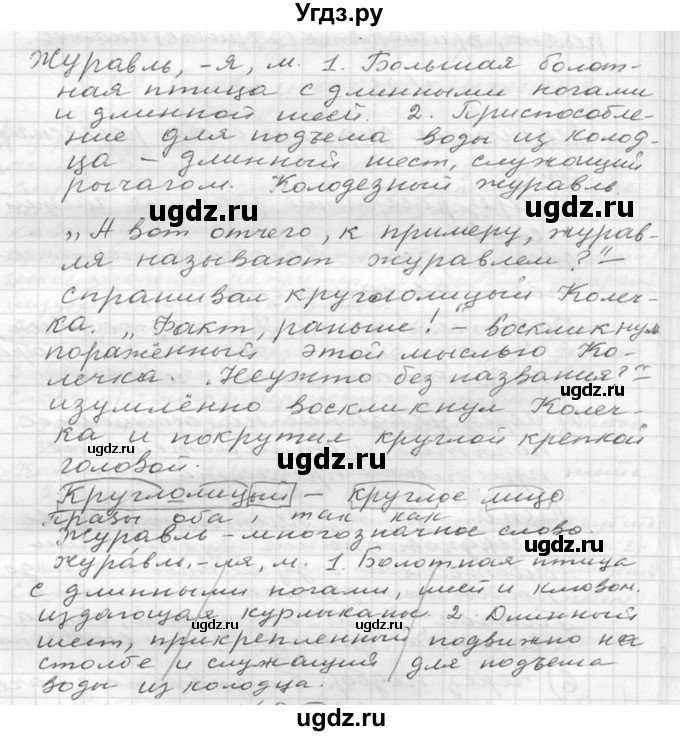 Угдз.ру
Журавль, -я, м. 1. Большая болот-
ная птица с длинными ногами
и длинной шеей. 2. Приспособле-
ние для подъема воды из колод-
ца - длинный шест, служащий
рычагом. Колодезный журавль
ugdz.ru ugdz.ru
„А вот отчего, к примеру, журав-
ля называют журавлем?" -
спрашивал круглолицый Колеч-
ка. „Факт, раньше!" - воскликнул
поражённый этой мыслью Ко-
лечка. „Неужто без названия?" -
ugdz.ru
изумлённо воскликнул Колеч-
ка и покрутил круглой крепкой
ugdz.ru
головой.
ugdz.ru
Круглолицый - круглое лицо
правы оба, так как
Журавль - многозначное слово.
ugdz.ru
журáвль, -ля, м. 1. Болотная птица
с длинными ногами, шеей и клювом.
издающая курлыканы 2. Длинный
ugdz.ru
шест, прикрепленный подвижно на
столбе и служащий для подъема
воды из колодца.
ugdz.ru
ugdz.ru